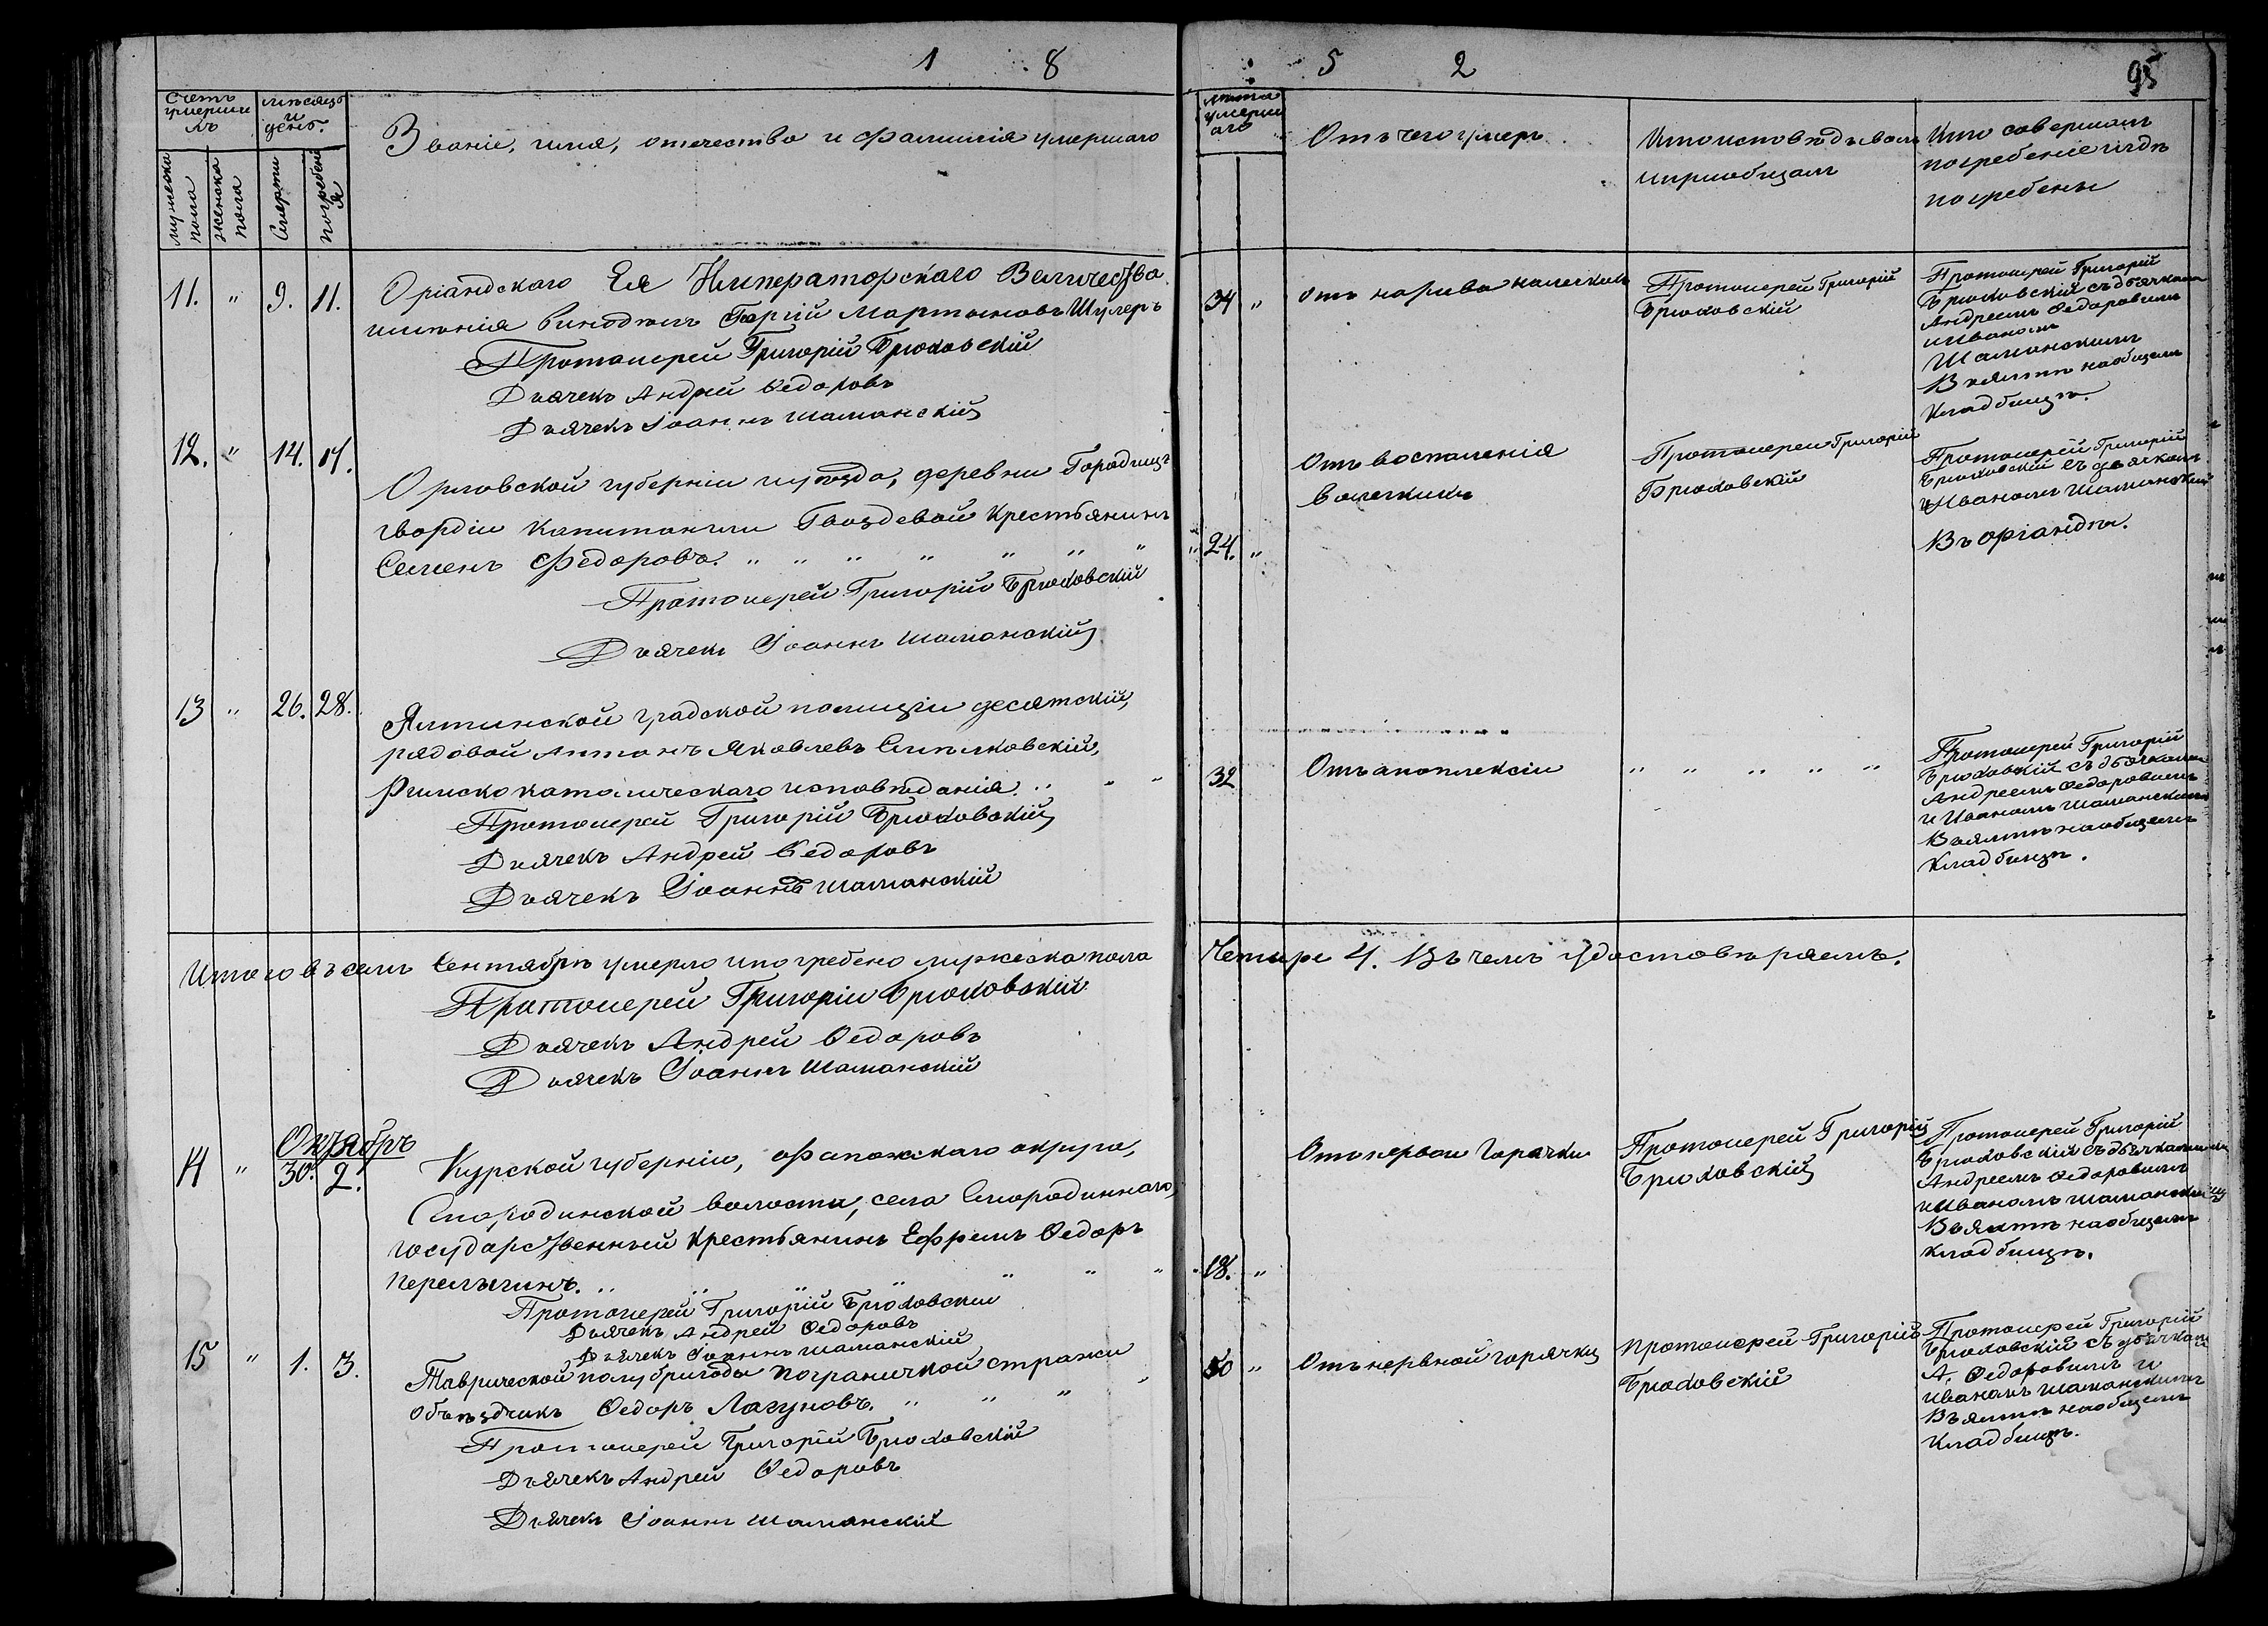 1 8
Счетъ умершихъ
мѣсяцъ и день.
мужеска пола
женска пола
Смерти
погребенія
Званіе, имя, отечество и фамилія умершаго
11. " 9. 11.
Оріандскаго Ея Императорскаго Величества
имѣнія винодѣлъ Георгій Мартыновъ Шулеръ
Протоіерей Григорій Брюховскій
Дьячекъ Андрей Ѳедоровъ
Дьячекъ Іоаннъ Шаманскій
12. " 14. 17.
Орловской губерніи и уѣзда, деревни Городищъ
гвардіи капитанши Гвоздевой крестьянинъ
Семенъ Федоровъ. " " " " " " "
Протоіерей Григорій Брюховскій
Дьячекъ Іоаннъ Шаманскій
13 " 26. 28.
Ялтинской градской полиціи десятскій,
рядовой Антонъ Яковлевъ
Римско католическаго исповѣданія. " " "
Протоіерей Григорій Брюховскій
Дьячекъ Андрей Ѳедоровъ
Дьячекъ Іоаннъ Шаманскій
Итого въ семъ Сентябрѣ умерло и погребено мужеска пола
Протоіерей Григорій Брюховскій
Дьячекъ Андрей Ѳедоровъ
Дьячекъ Іоаннъ Шаманскій
Октябрь
14 " 30. 2.
Курской губерніи, Фатожскаго округа,
Смородинской волости, села Смородиннаго,
государственный крестьянинъ Ефремъ Ѳедоръ
Перелыгинъ. " " " " " "
Протоіерей Григорій Брюховскій
Дьячекъ Андрей Ѳедоровъ
Дьячекъ Іоаннъ Шаманскій
15 " 1. 3.
Таврической полубригады пограничной стражи
объѣздчикъ Ѳедоръ Лагуновъ. " " " "
Протоіерей Григорій Брюховскій
Дьячекъ Андрей Ѳедоровъ
Дьячекъ Іоаннъ Шаманскій
5 2
95
лѣта умершаго
Отъ чего умеръ.
Кто исповѣдывалъ
и приобщалъ
Кто совершалъ
погребеніе и гдѣ
погребены
34 "
Отъ нарыва на легкихъ
Протоіерей Григорій
Брюховскій
Протоіерей Григорій
Брюховскій съ дьячками
Андреемъ Ѳедоровымъ
и Иваномъ
Шаманскимъ
В Ялтѣ на общемъ
Кладбищѣ.
24. "
Отъ воспаленія
в легкихъ
Протоіерей Григорій
Брюховскій
Протоіерей Григорій
Брюховскій съ дьячкомъ
Иваномъ Шаманскимъ
Въ Оріандѣ.
32
Отъ апоплексіи
" " " " "
Протоіерей Григорій
Брюховскій съ дьячками
Андреемъ Ѳедоровымъ
и Иваномъ Шаманскимъ
В Ялтѣ на общемъ
Кладбищѣ.
Четыре 4. Въ чемъ удостовѣряемъ.
18. "
Отъ нервои Горячки
Протоіерей Григорій
Брюховскій
Протоіерей Григорій
Брюховскій съ дьячками
Андреемъ Ѳедоровымъ
и Иваномъ Шаманскимъ
Въ Ялтѣ на общемъ
кладбищѣ.
50 "
Отъ нервной горячки
Протоіерей Григорій
Брюховскій
Протоіерей Григорій
Брюховскій съ дьячками
А. Ѳедоровымъ и
Иваномъ Шаманскимъ
Въ Ялтѣ на общемъ
Кладбищѣ.